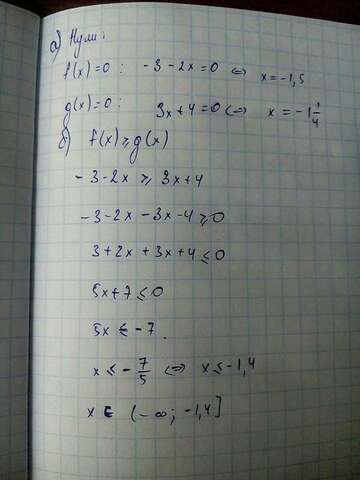 а) Нули:
f(x)=0: -3-2x=0 ⇔ x=-1,5
g(x)=0: 3x+4=0 ⇔ x=-1 1/4
б) f(x)≥g(x)
-3-2x ≥ 3x+4
-3-2x-3x-4≥0
3+2x+3x+4≤0
5x+7≤0
5x≤-7.
x≤-7/5 ⇔ x≤-1,4
x∈(-∞;-1,4]